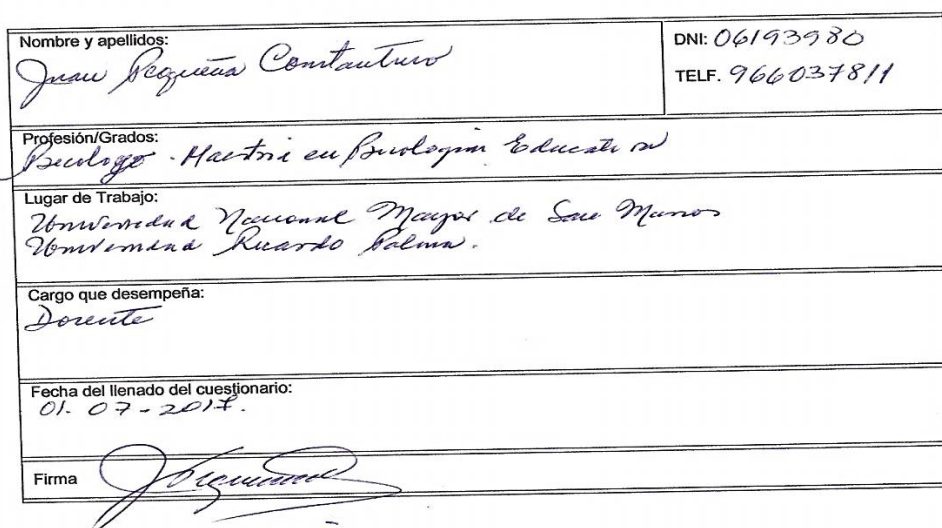 Nombre y apellidos:
Juan Pequeña Constantino
DNI: 06193980
TELF. 966037811
Profesión/Grados:
Psicólogo - Maestria en Psicologia Educativa
Lugar de Trabajo:
Universidad Nacional Mayor de San Marcos
Universidad Ricardo Palma.
Cargo que desempeña:
Docente
Fecha del llenado del cuestionario:
01-07-2017.
Firma